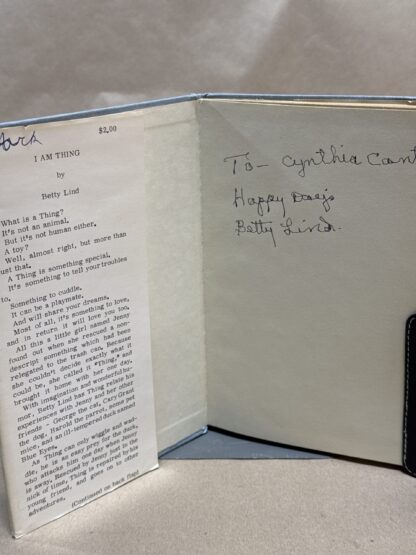 $2.00
I AM THING
by
Betty Lind
What is a Thing?
It's not an animal.
But it's not human either.
A toy?
Well, almost right, but more than
just that.
A Thing is something special.
It's something to tell your troubles
to.
Something to cuddle.
It can be a playmate.
And will share your dreams.
Most of all, it's something to love,
and in return it will love you too.
All this a little girl named Jenny
found out when she rescued a non-
descript something which had been
relegated to the trash can. Because
she couldn't decide exactly what it
could be, she called it "Thing," and
brought it home with her one day.
With imagination and wonderful hu-
mor, Betty Lind has Thing relate his
experiences with Jenny and her other
friends - George the cat, Cary Grant
the dog, Harold the parrot, some pet
mice, and an ill-tempered duck named
Blue Eyes.
As Thing can only wiggle and wad-
dle, he is an easy prey for the duck,
who attacks him one day when Jenny
is away. Rescued by Jenny just in the
nick of time, Thing is repaired by his
young friend, and goes on to other
adventures.
(Continued on back flap)
To - Cynthia
Happy Days
Betty Lind.